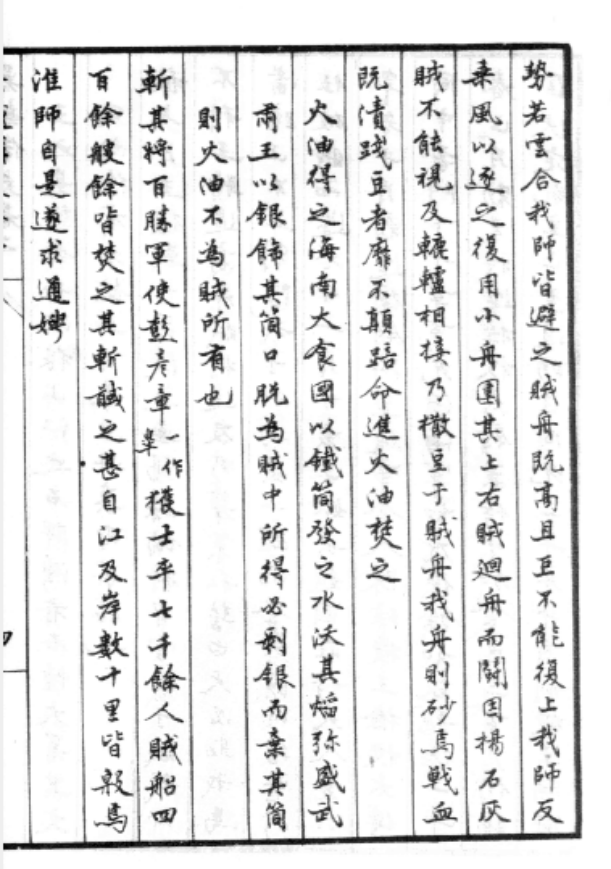 勢若雲合我師皆避之賊舟既高且巨不能復上我師反
乘風以逐之復用小舟圍其上右賊廻舟而鬬因揚石灰
賊不能視及轆轤相接乃撒豆于賊舟我舟則砂焉戰血
既漬踐豆者靡不顛踣命進火油焚之
火油得之海南大食國以鐵筒發之水沃其焰弥盛武
肅王以銀飾其筒口脫為賊中所得必剥銀而棄其筒
則火油不為賊所有也
斬其將百勝軍使彭彦章一作皐獲士卒七千餘人賊船四
百餘艘餘皆焚之其斬馘之甚自江及岸數十里皆殷焉
淮師自是遂求通娉